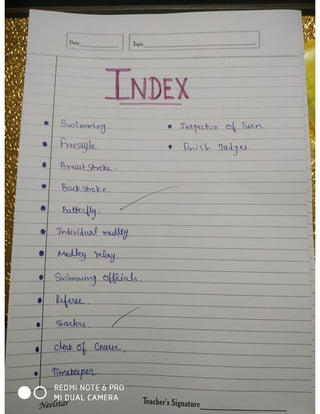 Date
Topic
INDEX
Swimming
Freestyle
Breast stroke.
Back stroke
Butterfly.
Individual medley.
Medley relay.
Swimming officials.
Referee.
Starters.
Clerk of Course.
Timekeeper.
Inspector of Turn
Finish Judges.
REDMI NOTE 6 PRO
MI DUAL CAMERA
Neelstar
Teacher's Signature